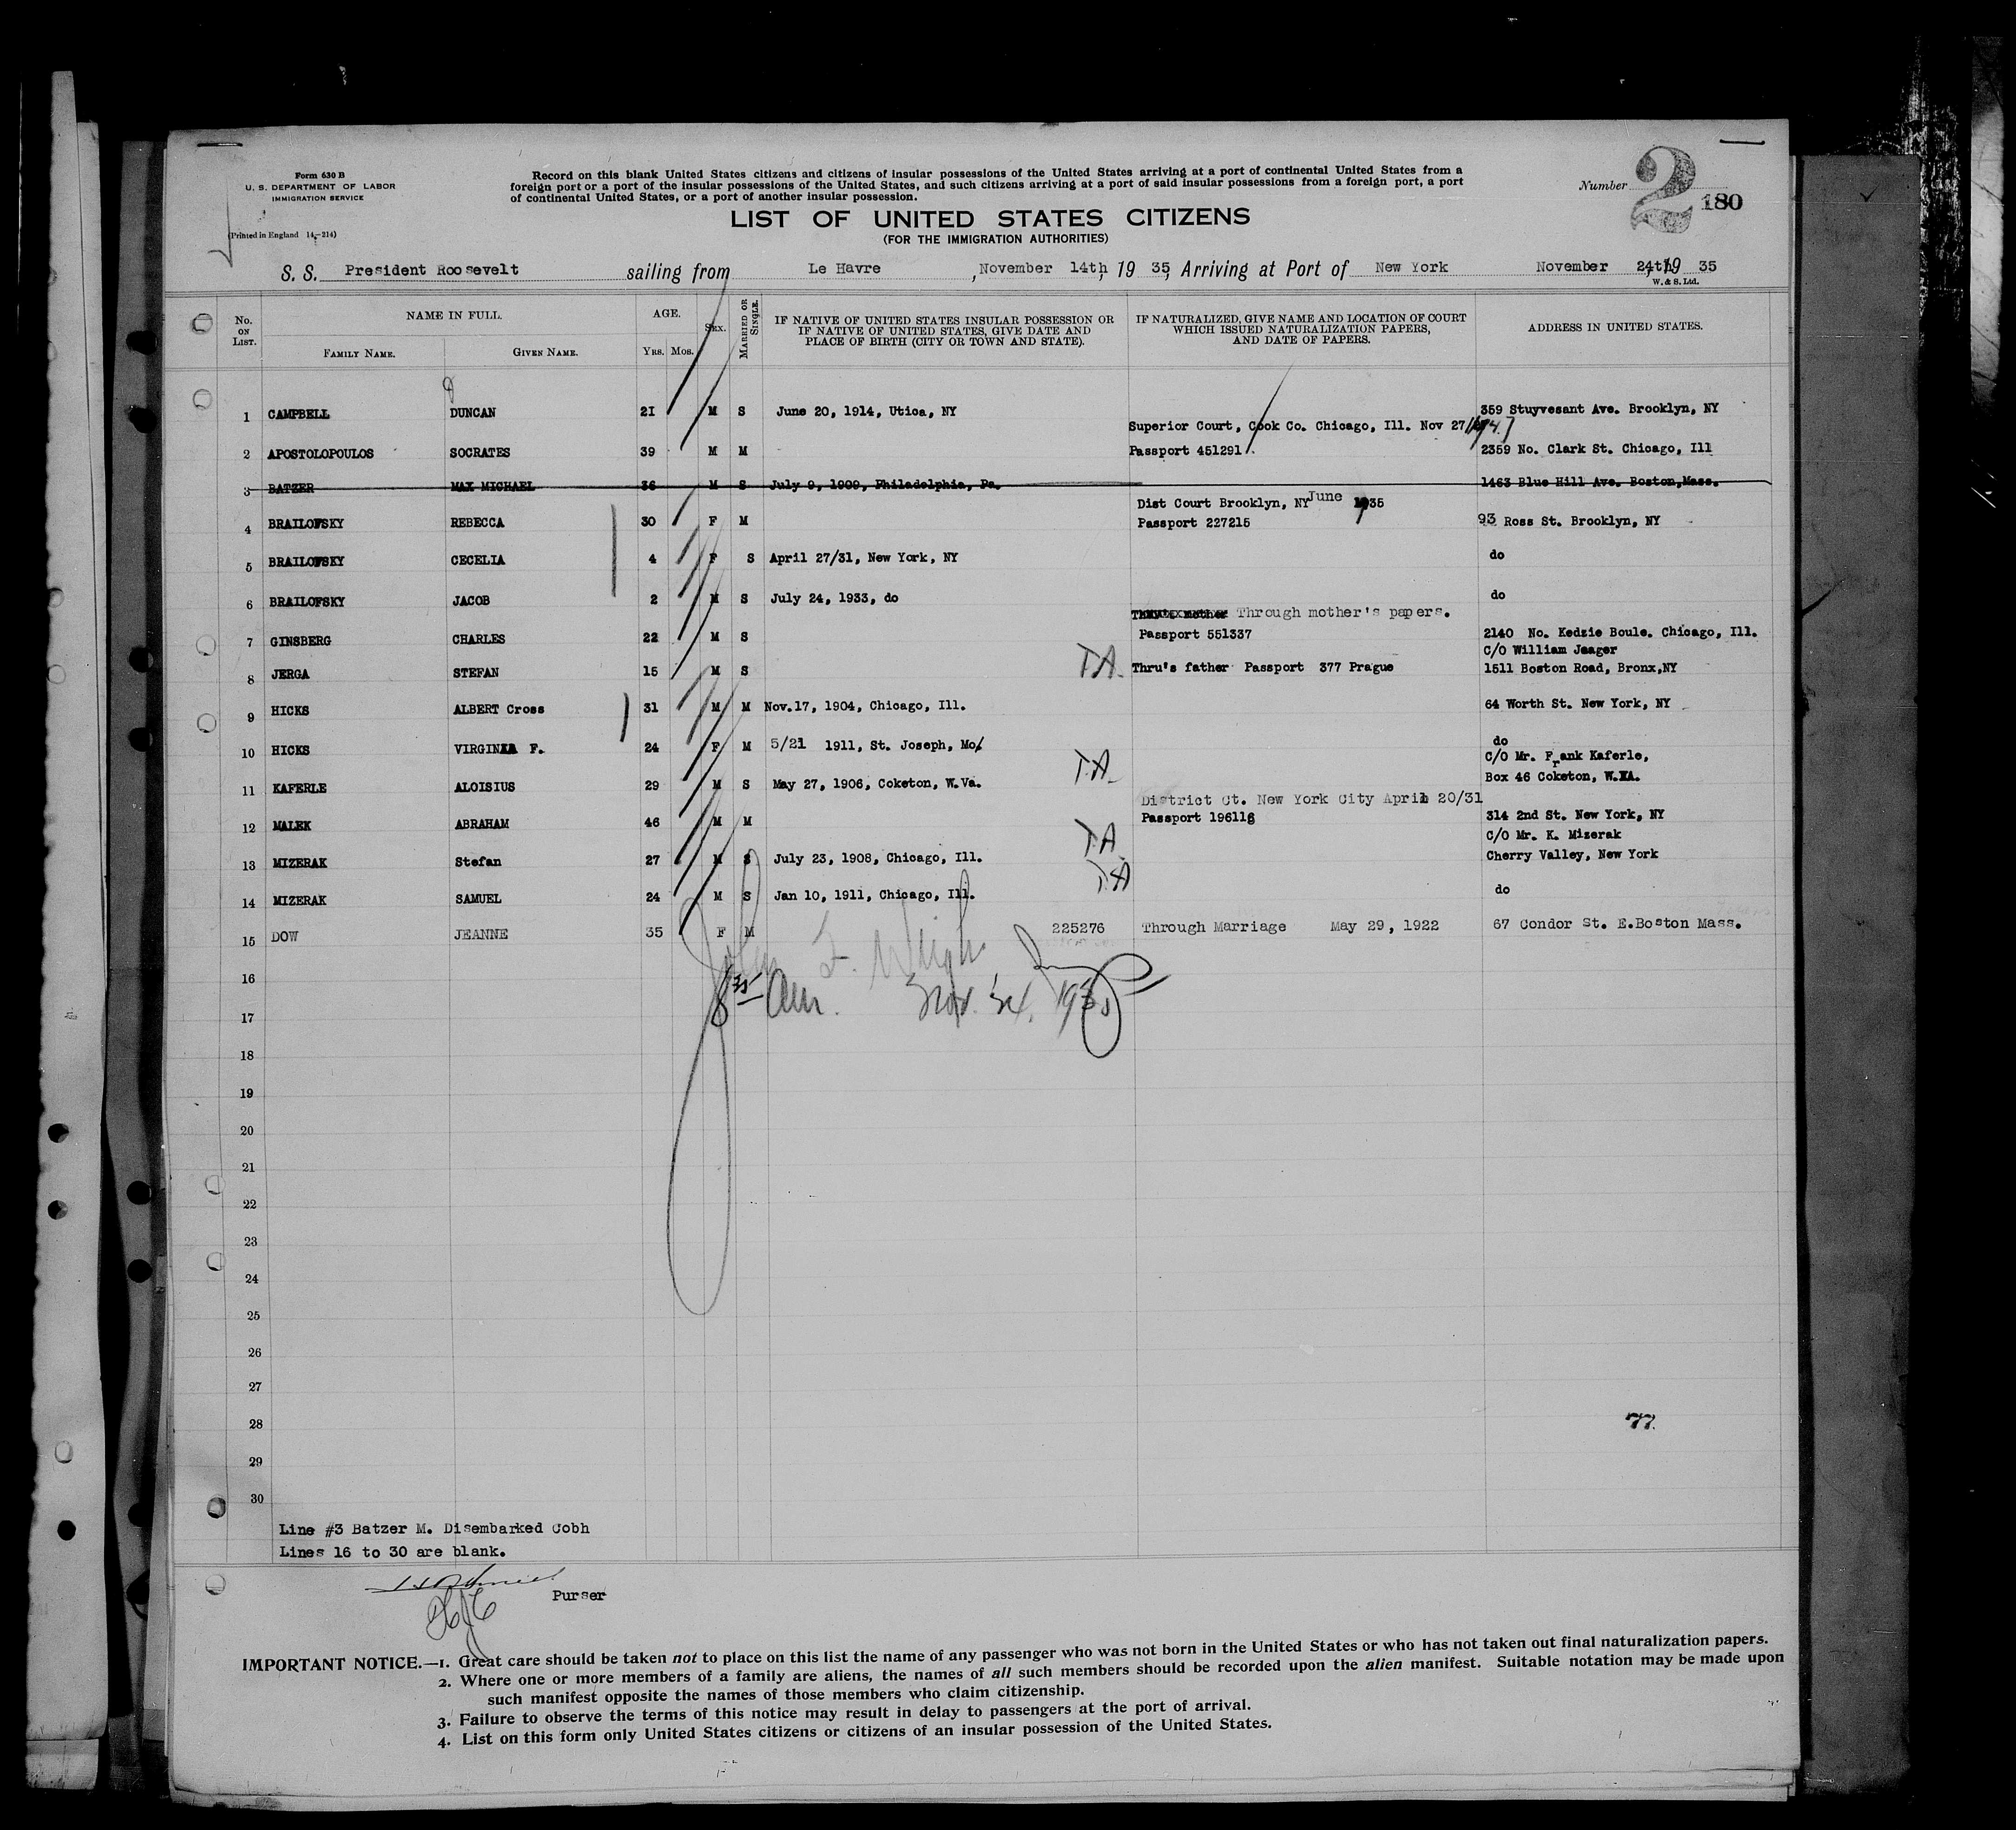 Form 630 B
U. S. DEPARTMENT OF LABOR
IMMIGRATION SERVICE
(Printed in England 14-214)
Record on this blank United States citizens and citizens of insular possessions of the United States arriving at a port of continental United States from a
foreign port or a port of the insular possessions of the United States, and such citizens arriving at a port of said insular possessions from a foreign port, a port
of continental United States, or a port of another insular possession.
Number 2 180
LIST OF UNITED STATES CITIZENS
(FOR THE IMMIGRATION AUTHORITIES)
S. S. President Roosevelt sailing from Le Havre, November 14th, 19 35, Arriving at Port of New York November 24th, 19 35
W. & S. Ltd.
No. ON LIST. NAME IN FULL. AGE. SEX. MARRIED OR SINGLE. IF NATIVE OF UNITED STATES INSULAR POSSESSION OR IF NATIVE OF UNITED STATES, GIVE DATE AND PLACE OF BIRTH (CITY OR TOWN AND STATE). IF NATURALIZED, GIVE NAME AND LOCATION OF COURT WHICH ISSUED NATURALIZATION PAPERS, AND DATE OF PAPERS. ADDRESS IN UNITED STATES.
FAMILY NAME. GIVEN NAME. YRS. MOS.
1 CAMPBELL DUNCAN 21 M S June 20, 1914, Utica, NY 359 Stuyvesant Ave. Brooklyn, NY
Superior Court, Cook Co. Chicago, Ill. Nov 27
2 APOSTOLOPOULOS SOCRATES 39 M M Passport 451291 2359 No. Clark St. Chicago, Ill
3 BATZER MAX MICHAEL 36 M S July 9, 1909, Philadelphia, Pa. 1463 Blue Hill Ave. Boston,Mass.
Dist Court Brooklyn, NY June 1935
4 BRAILOFSKY REBECCA 30 F M Passport 227215 93 Ross St. Brooklyn, NY
5 BRAILOFSKY CECELIA 4 F S April 27/31, New York, NY do
6 BRAILOFSKY JACOB 2 M S July 24, 1933, do do
Through mother's papers.
7 GINSBERG CHARLES 22 M S Passport 551337 2140 No. Kedzie Boule. Chicago, Ill.
C/O William Jaager
8 JERGA STEFAN 15 M S T.A. Thru's father Passport 377 Prague 1511 Boston Road, Bronx,NY
9 HICKS ALBERT Cross 31 M M Nov.17, 1904, Chicago, Ill. 64 Worth St. New York, NY
10 HICKS VIRGINIA F. 24 F M 5/21 1911, St. Joseph, Mo. do
C/O Mr. Frank Kaferle,
11 KAFERLE ALOISIUS 29 M S May 27, 1906, Coketon, W.Va. T.A. Box 46 Coketon, W.VA.
District Ct. New York City April 20/31
12 MALEK ABRAHAM 46 M M Passport 196116 314 2nd St. New York, NY
C/O Mr. K. Mizerak
13 MIZERAK Stefan 27 M S July 23, 1908, Chicago, Ill. T.A. Cherry Valley, New York
14 MIZERAK SAMUEL 24 M S Jan 10, 1911, Chicago, Ill. T.A. do
15 DOW JEANNE 35 F M 225276 Through Marriage May 29, 1922 67 Condor St. E.Boston Mass.
16
17 Nov. 24, 1935
18
19
20
21
22
23
24
25
26
27
28 77.
29
30
Line #3 Batzer M. Disembarked Cobh
Lines 16 to 30 are blank.
Purser
IMPORTANT NOTICE.—1. Great care should be taken not to place on this list the name of any passenger who was not born in the United States or who has not taken out final naturalization papers.
2. Where one or more members of a family are aliens, the names of all such members should be recorded upon the alien manifest. Suitable notation may be made upon
such manifest opposite the names of those members who claim citizenship.
3. Failure to observe the terms of this notice may result in delay to passengers at the port of arrival.
4. List on this form only United States citizens or citizens of an insular possession of the United States.